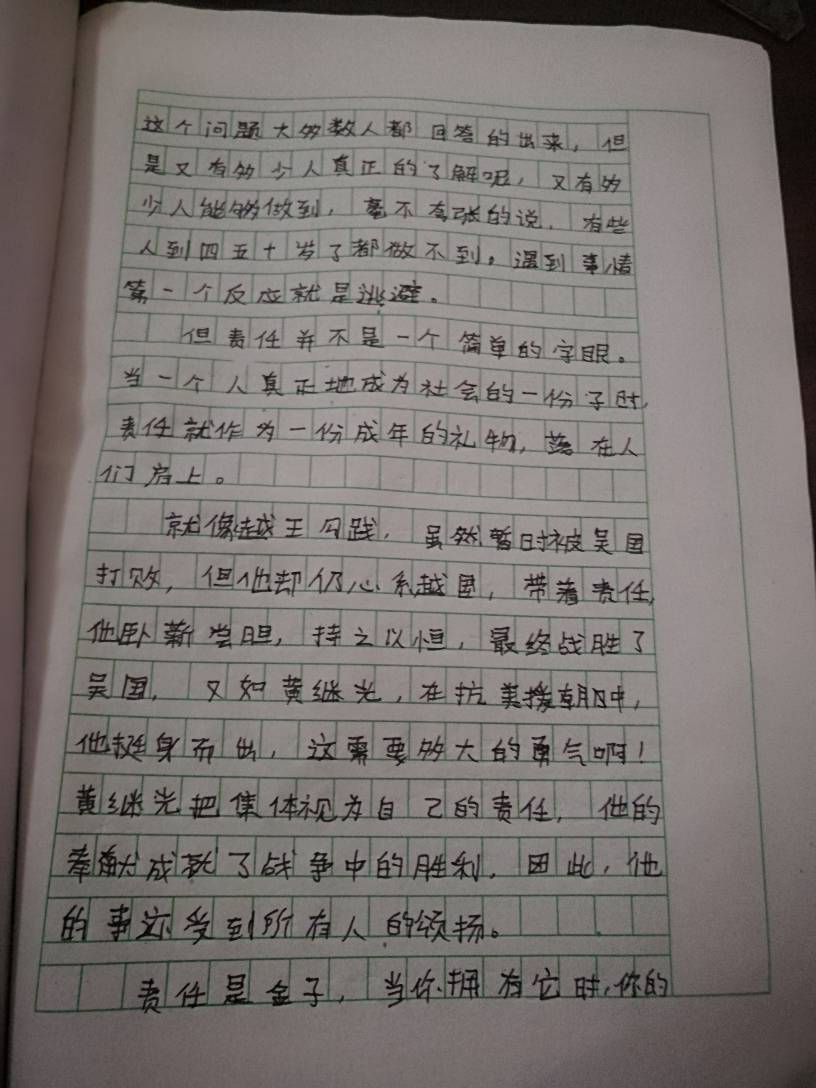 这个问题大多数人都回答的出来，但
是又有多少人真正的了解呢，又有多
少人能够做到，毫不夸张的说，有些
人到四五十岁了都做不到。遇到事情
第一个反应就是逃避。
但责任并不是一个简单的字眼。
当一个人真正地成为社会的一份子时，
责任就作为一份成年的礼物，落在人
们肩上。
就像越王勾践，虽然暂时被吴国
打败，但他却仍心系越国，带着责任，
他卧薪尝胆，持之以恒，最终战胜了
吴国，又如黄继光，在抗美援朝中，
他挺身而出，这需要多大的勇气啊！
黄继光把集体视为自己的责任，他的
奉献成就了战争中的胜利，因此，他
的事迹受到所有人的颂扬。
责任是金子，当你拥有它时，你的